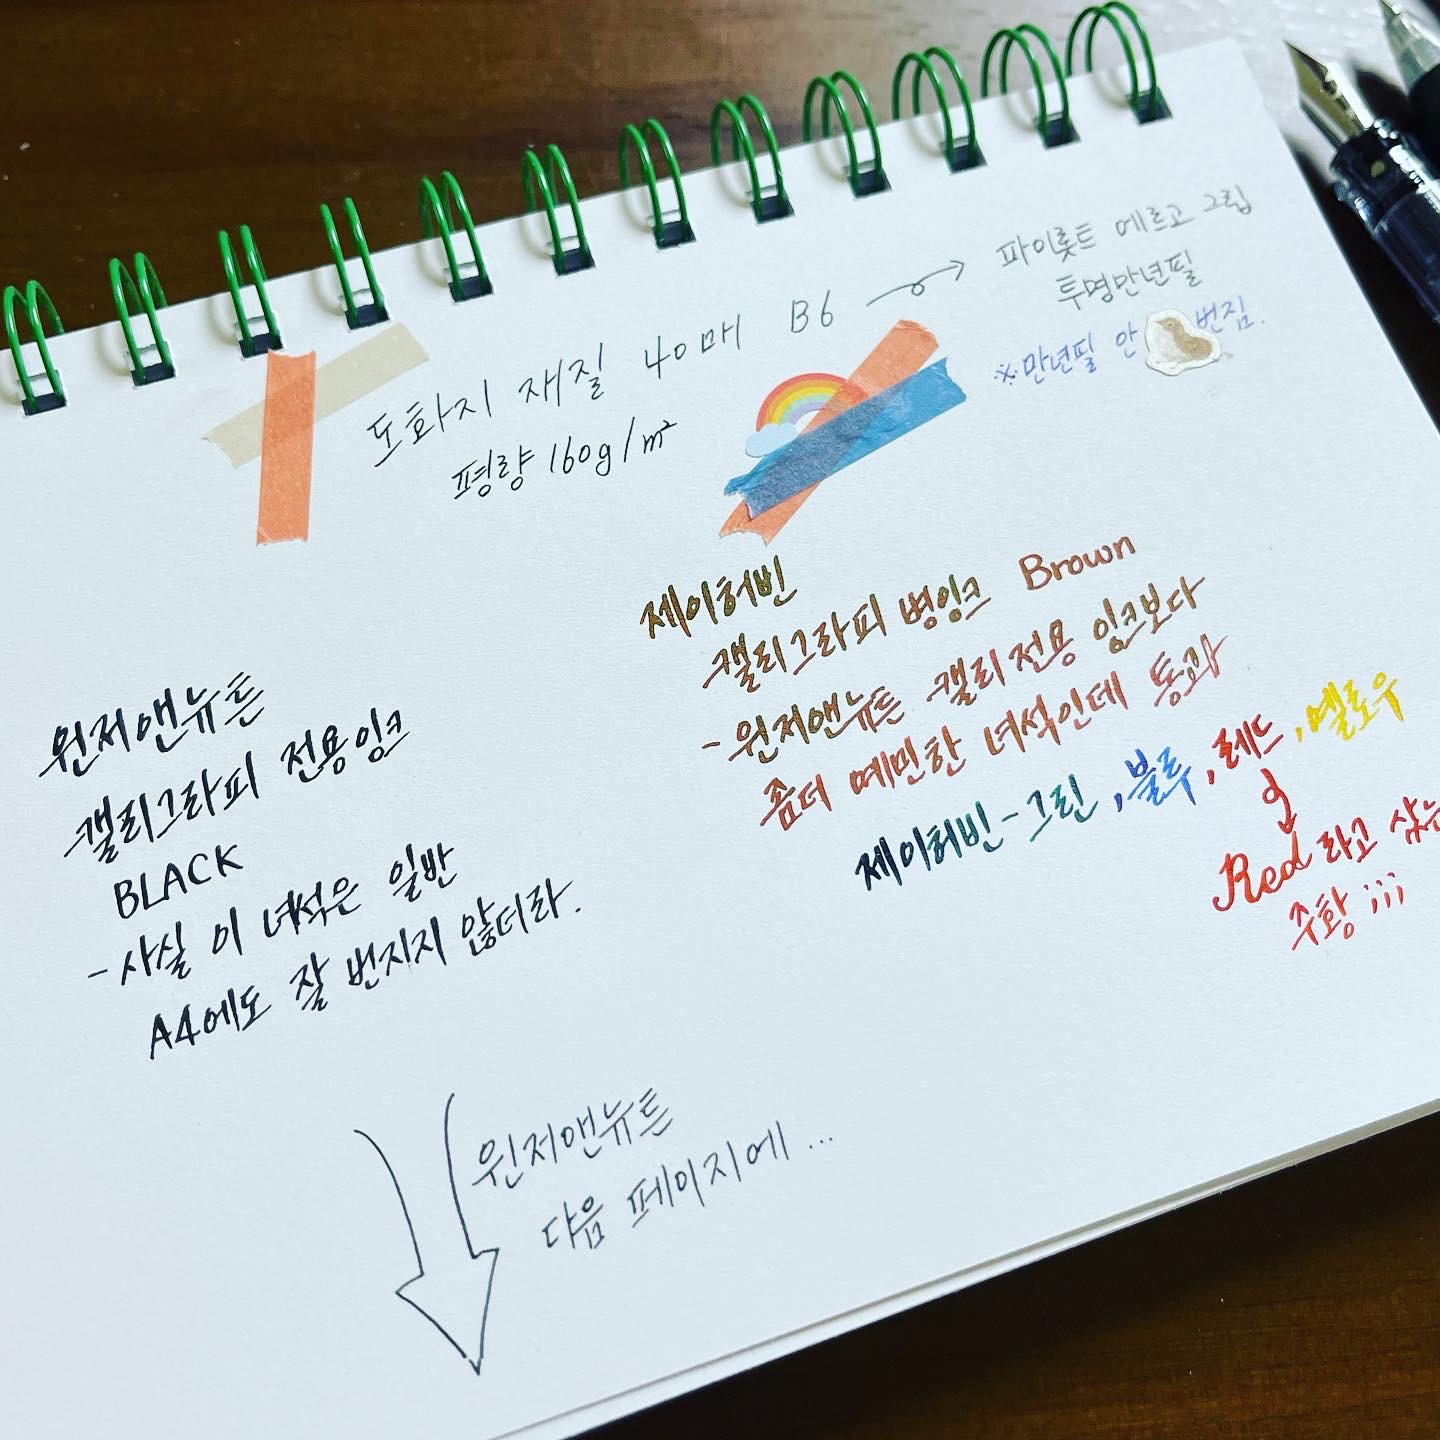 도화지 재질 40매 B6
평량 160g/m²
파이롯트 에르고 그립
투명만년필
※만년필 안 번짐.
제이허빈
캘리그라피 병잉크 Brown
-윈저앤뉴튼 캘리전용 잉크보다
좀더 예민한 녀석인데 통과
제이허빈-그린, 블루, 레드, 옐로우
Red 라고 쓰는
주황 ;;;
윈저앤뉴튼
캘리그라피 전용잉크
BLACK
-사실 이 녀석은 일반
A4에도 잘 번지지 않더라.
윈저앤뉴튼
다음 페이지에...